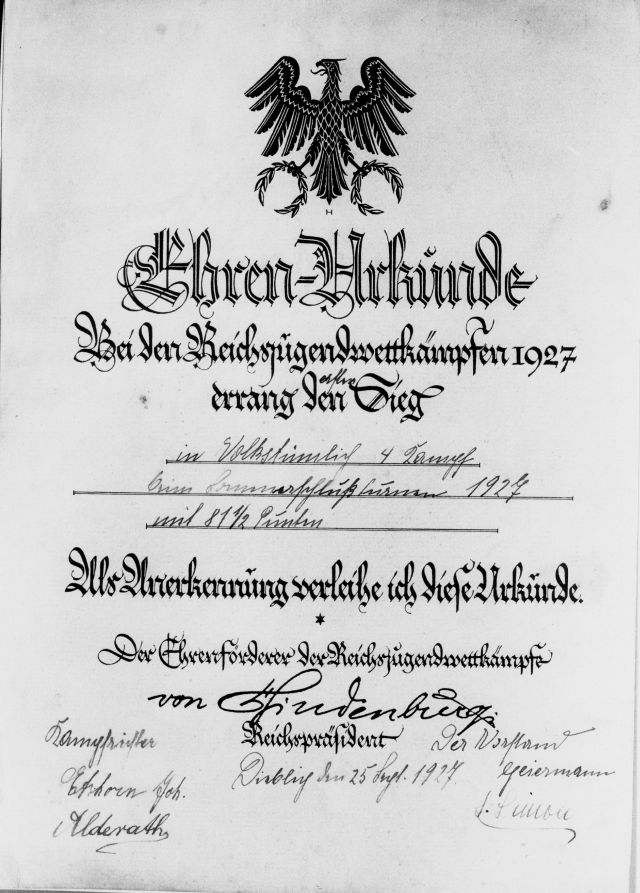 H
Ehren-Urkunde
Bei den Reichsjugendwettkämpfen 1927
errang den Sieg
in Volkstümlich 4 Kampf
beim Sommerschlußturnen 1927
mit 81 1/2 Punkten
Als Anerkennung verleihe ich diese Urkunde.
*
Der Ehrenförderer der Reichsjugendwettkämpfe
von Hindenburg.
Reichspräsident
Kampfrichter
Der Vorstand
Dieblich den 25 Sept. 1927.
Geiermann
Joh.
Alderath
Simon